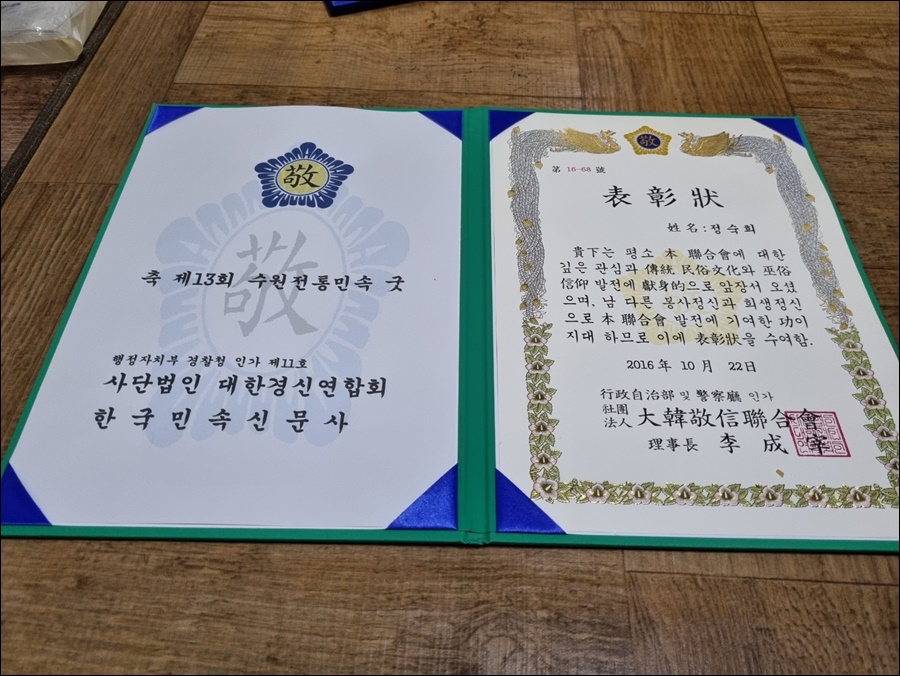 敬
敬
축 제13회 수원전통민속 굿
행정자치부 경찰청 인가 제11호
사단법인 대한경신연합회
한국민속신문사
敬
第 16-68 號
表彰狀
姓名:정숙희
貴下는 평소 本 聯合會에 대한
깊은 관심과 傳統 民俗文化와 巫俗
信仰 발전에 獻身的으로 앞장서 오셨
으며, 남 다른 봉사정신과 희생정신
으로 本 聯合會 발전에 기여한 功이
지대 하므로 이에 表彰狀을 수여함.
2016 年 10 月 22日
行政自治部 및 警察廳 인가
社團
法人 大韓敬信聯合會
理事長 李 成 宰